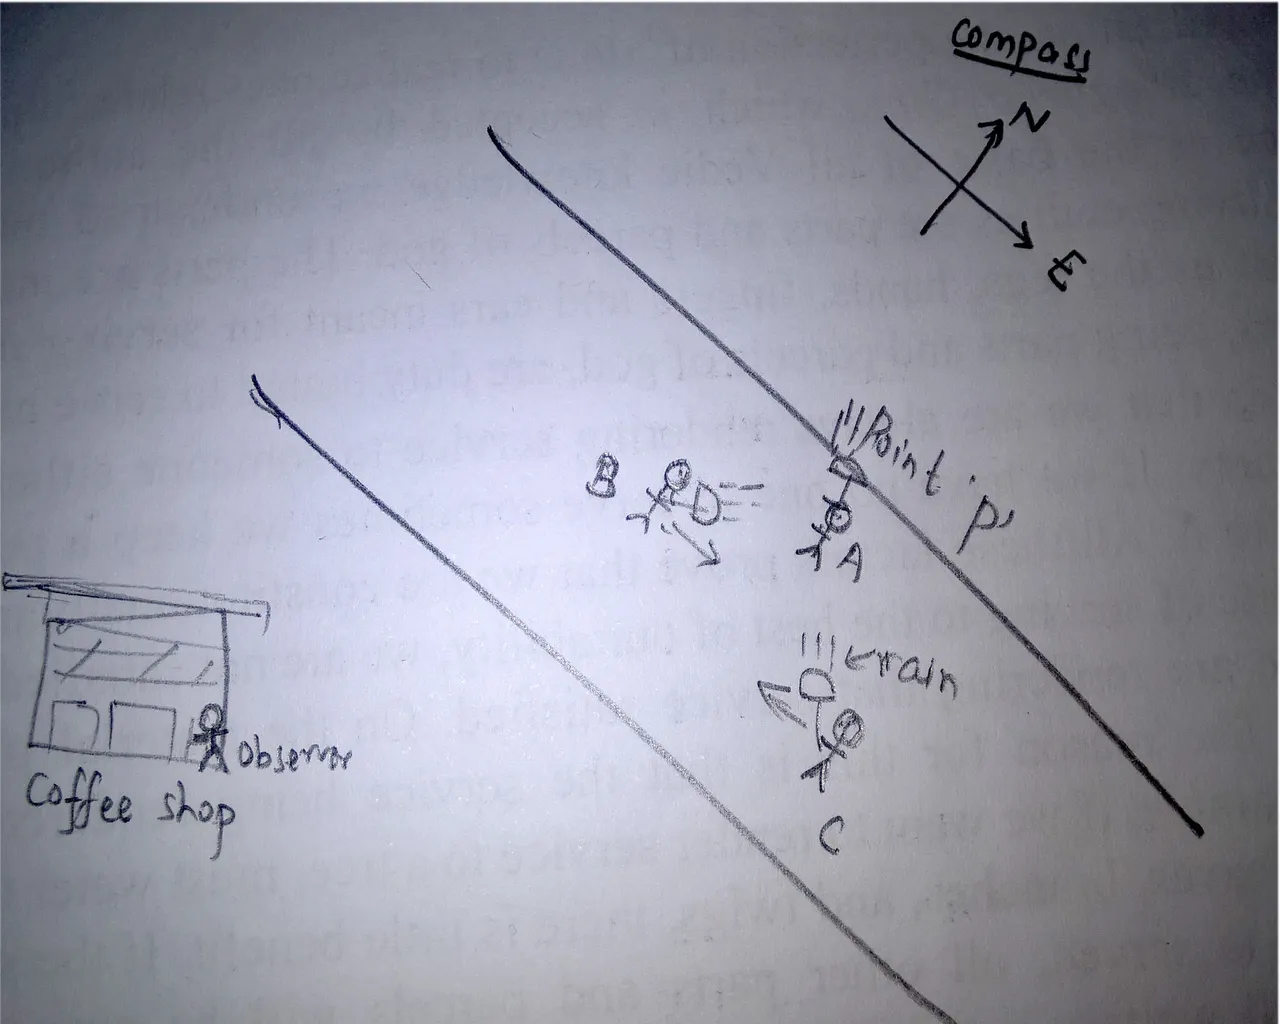 compass
N
E
Point 'P'
B
A
rain
C
Observor
Coffee shop